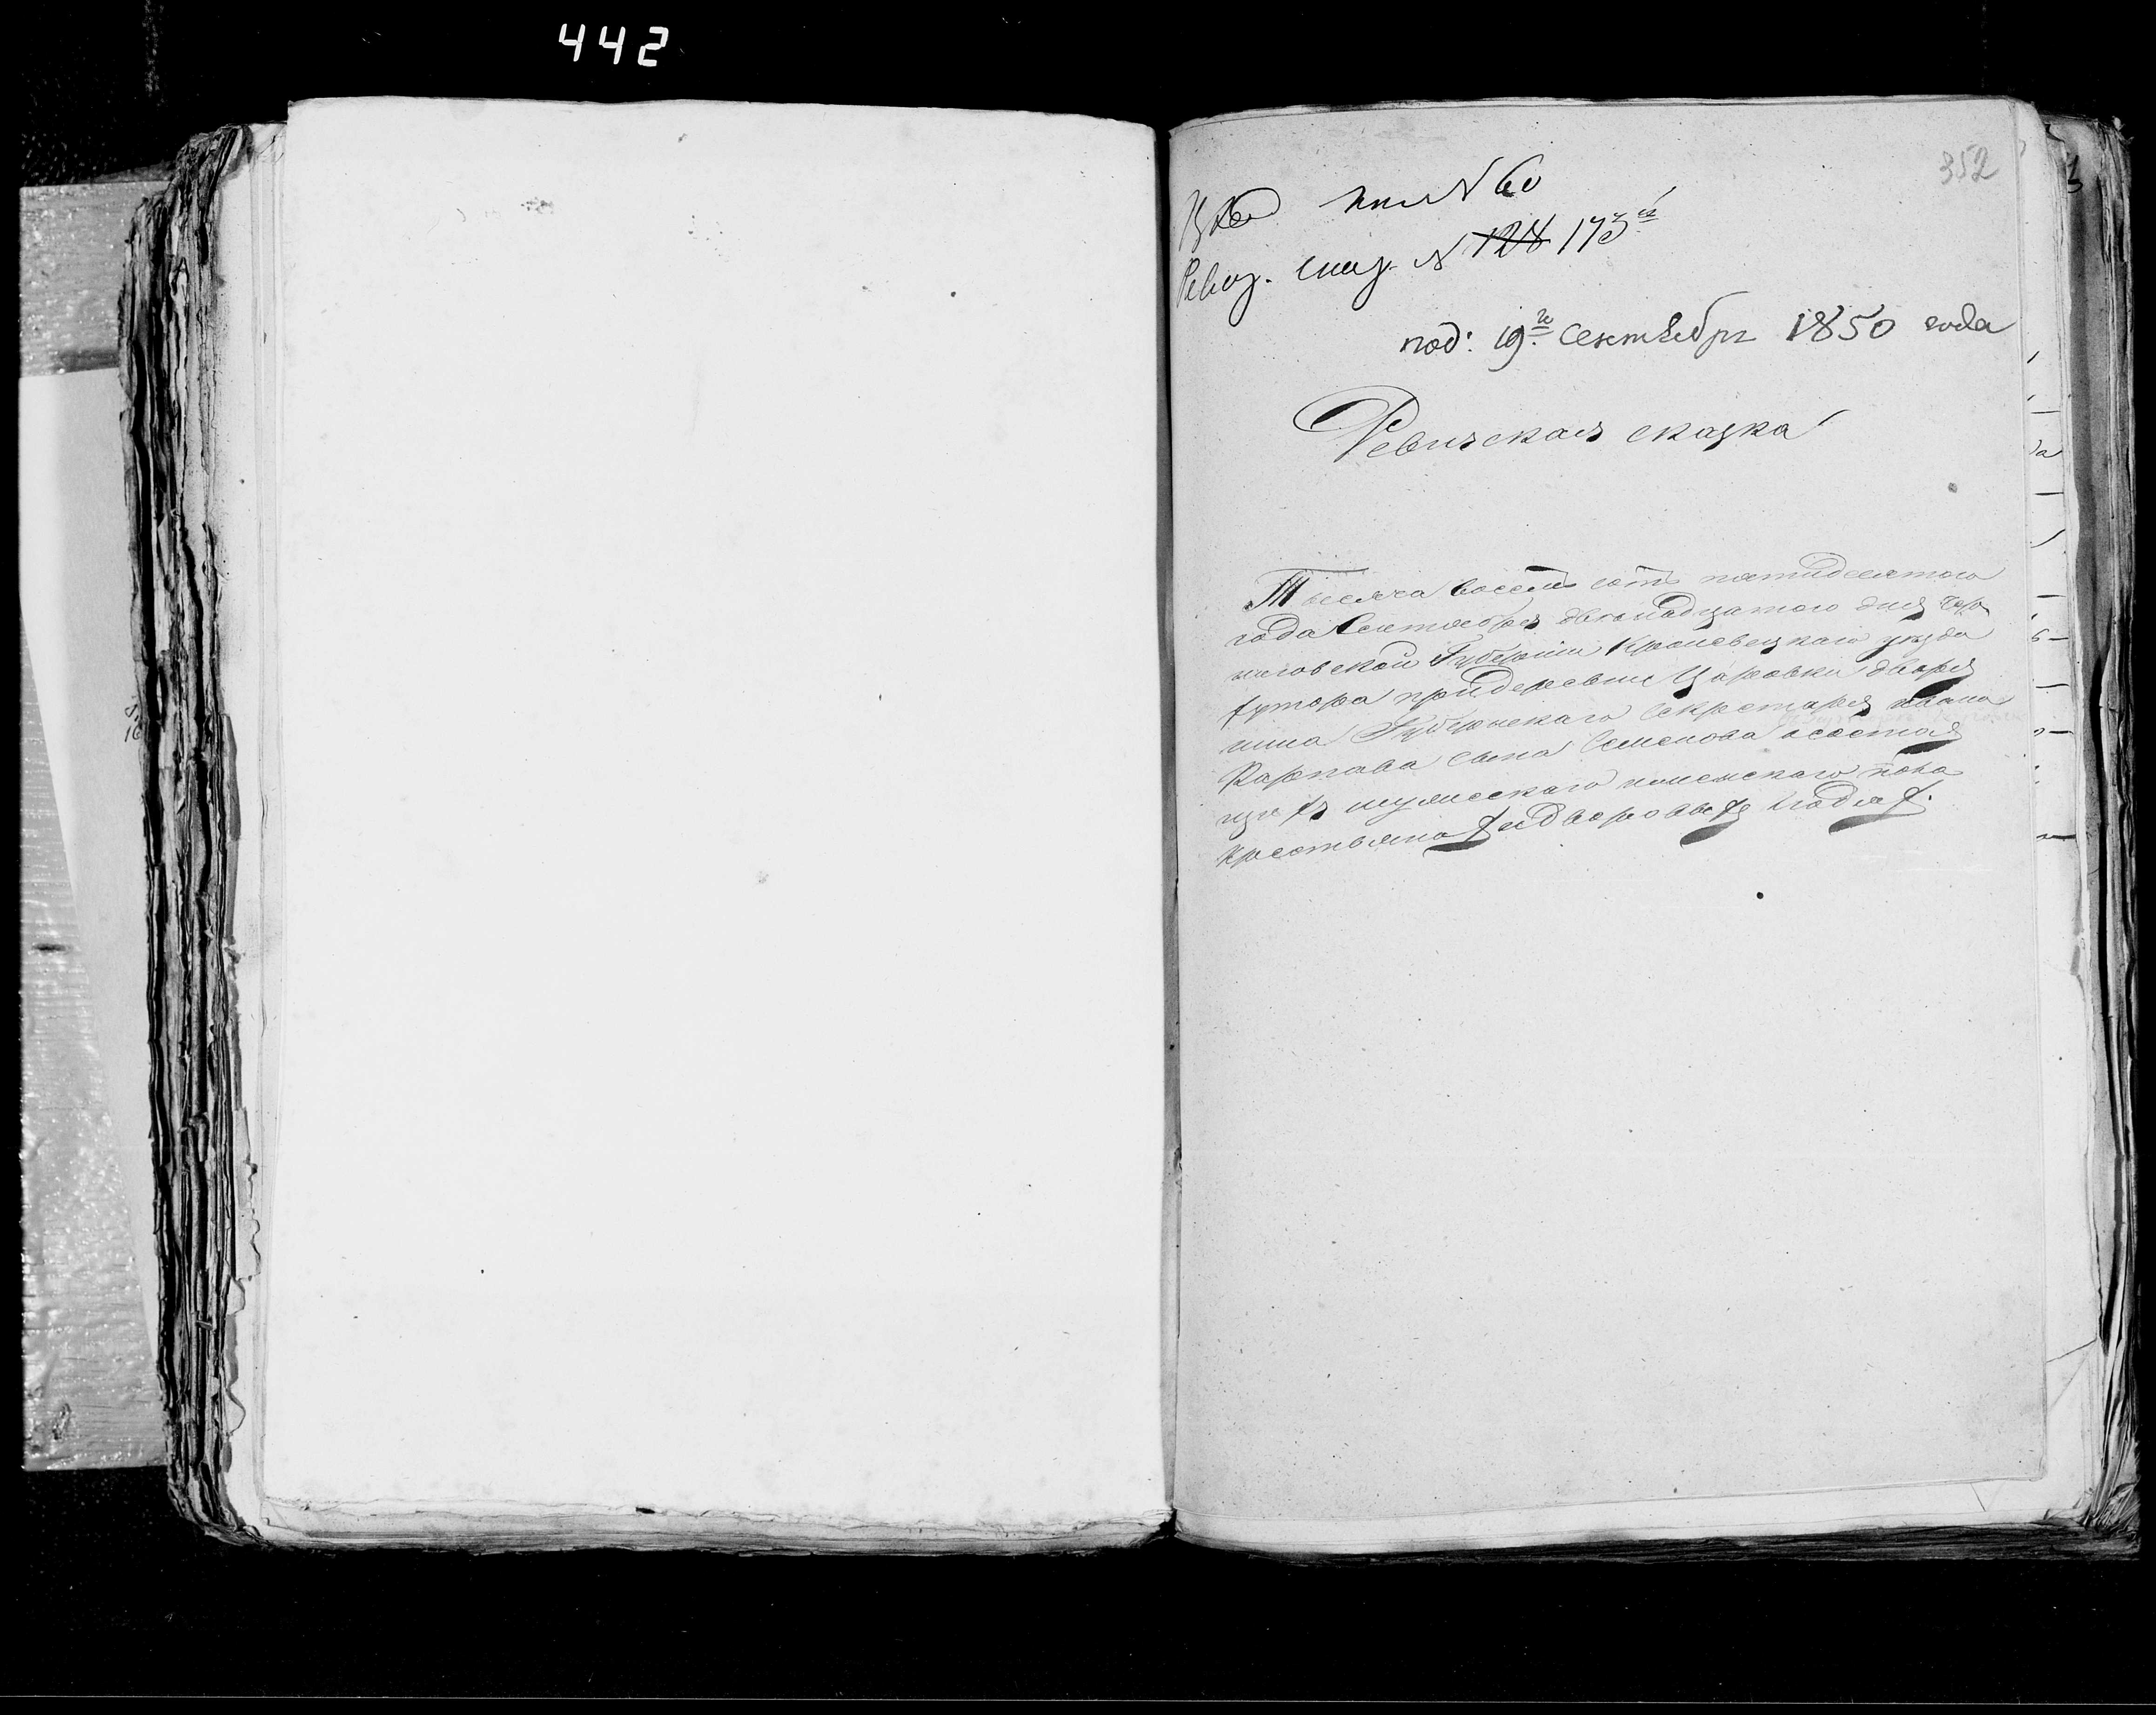 442
352
N 60
Ревиз. сказ. N 128 173й
под: 19го Сентября 1850 года
Ревизская сказка
Тысяча восем сот пятидесятого
года Сентября двенадцатого дня Чер
ниговской Губернии Кролевецкого уезда
хутора придеревне Царовки дворя
нина Губернского Секретаря Ивана
Карпова сына Семенова осостоя
щих мужеского иженского пола
крестьянах идворовых людях.